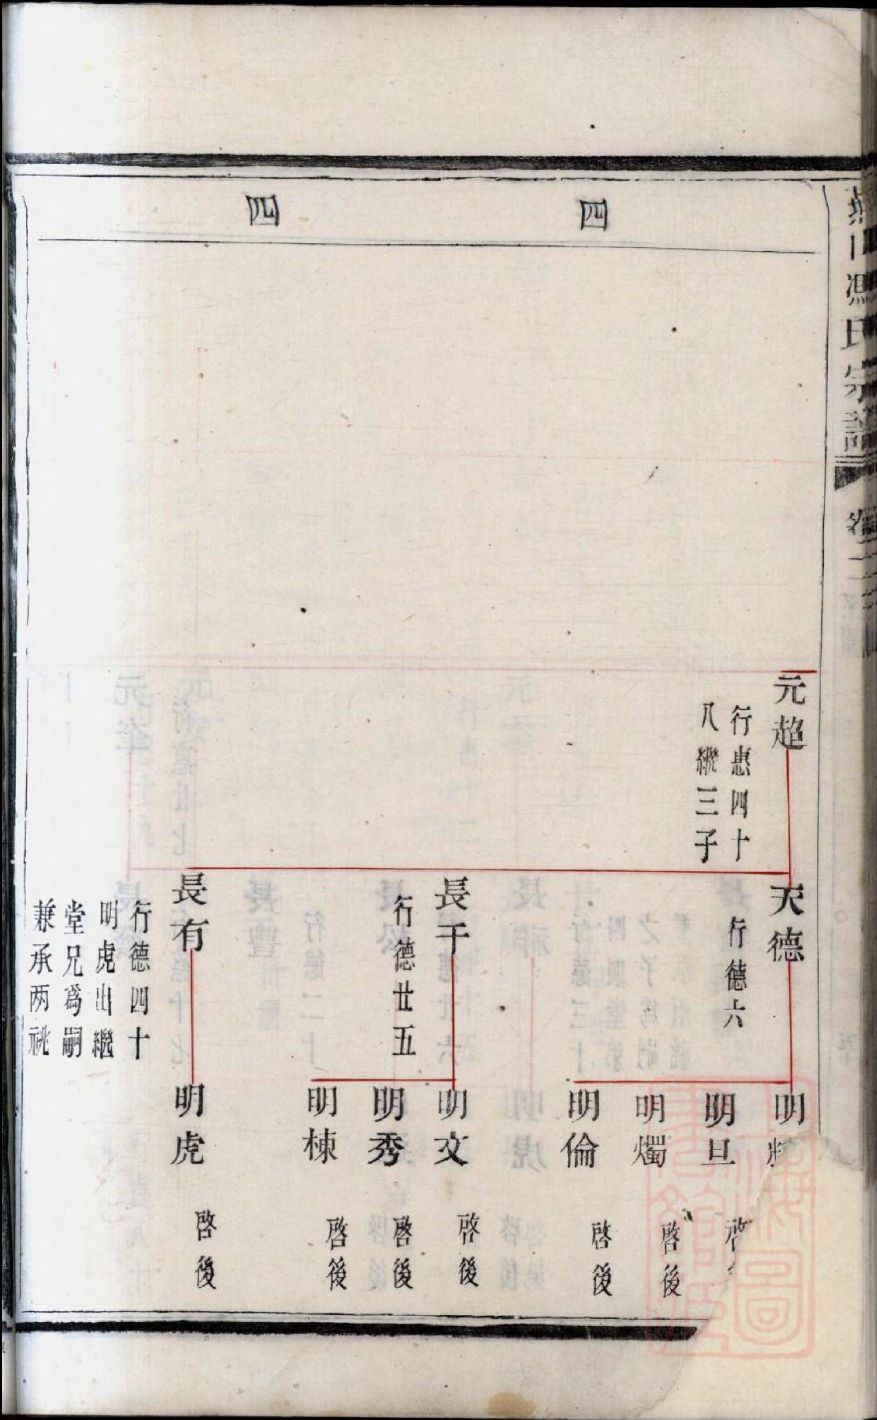 馮氏宗譜
四
四
元超
行惠四十
八繼三子
天德
行德六
長千
行德廿五
長有
行德四十
明虎出繼
堂兄爲嗣
兼承两祧
明
明旦
啓
明燭
啓後
明倫
啓後
明文
啓後
明秀
啓後
明棟
啓後
明虎
啓後